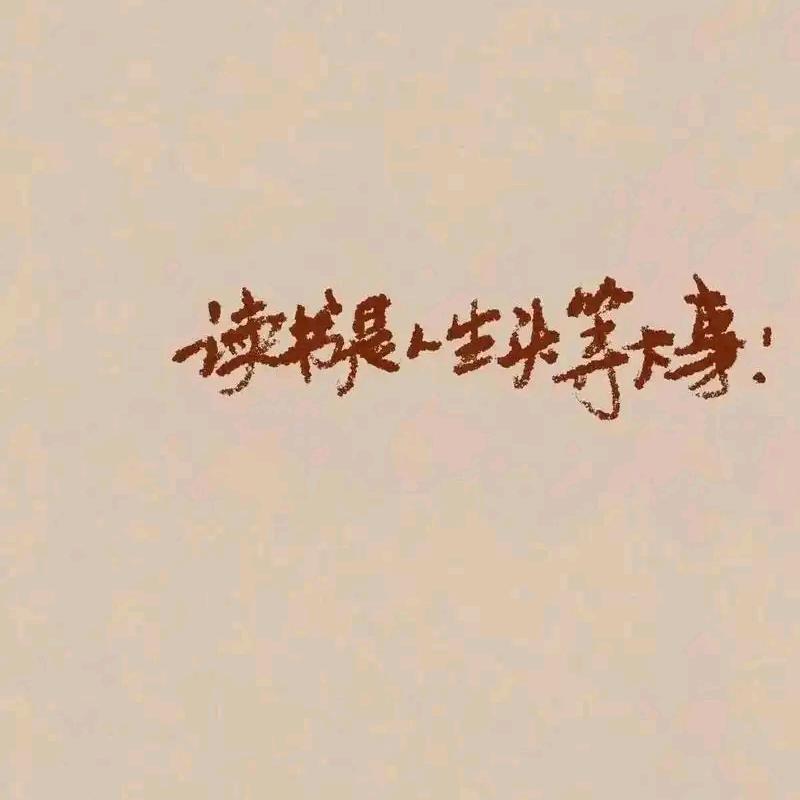 读书是人生头等大事！